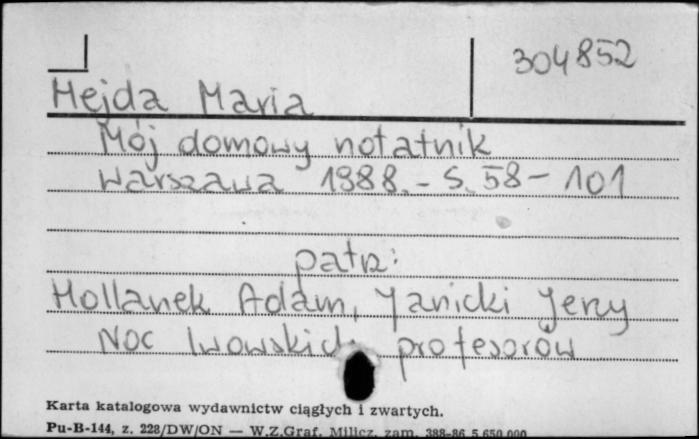 304852
Hejda Maria
Mój domowy notatnik
Warszawa 1988. - S. 58 - 101
patrz:
Hollanek Adam, Janicki Jerzy
Noc lwowskich profesorów
Karta katalogowa wydawnictw ciągłych i zwartych.
Pu-B-144, z. 228/DW/ON — W.Z.Graf. Milicz, zam. 388-86 5.650.000